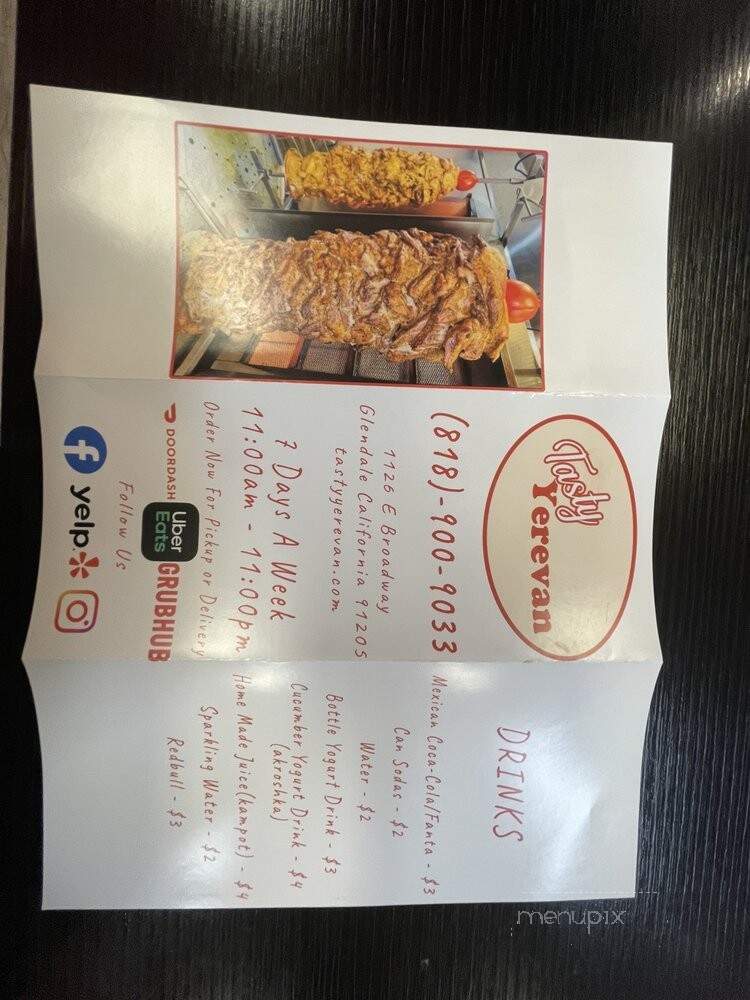 Tasty
Yerevan
(818)-900-9033
1126 E Broadway
Glendale California 91205
tastyyerevan.com
7 Days A Week
11:00am - 11:00pm
Order Now For Pickup or Delivery
DOORDASH
Uber
Eats
GRUBHUB
yelp
Follow Us
DRINKS
Mexican Coca-Cola/Fanta - $3
Can Sodas - $2
Water - $2
Bottle Yogurt Drink - $3
Cucumber Yogurt Drink - $4
(akroshka)
Home Made Juice(kampot) - $4
Sparkling Water - $2
Redbull - $3
menupix